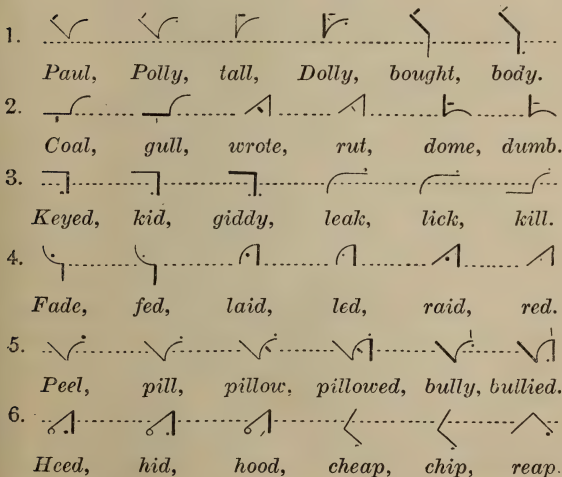 1.
Paul, Polly, tall, Dolly, bought, body.
2.
Coal, gull, wrote, rut, dome, dumb.
3.
Keyed, kid, giddy, leak, lick, kill.
4.
Fade, fed, laid, led, raid, red.
5.
Peel, pill, pillow, pillowed, bully, bullied.
6.
Heed, hid, hood, cheap, chip, reap.